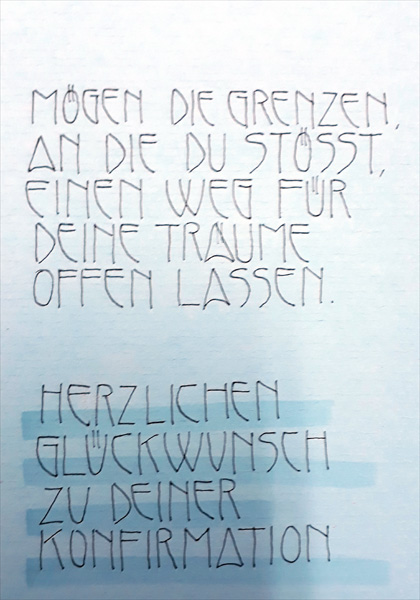 MÖGEN DIE GRENZEN,
AN DIE DU STÖSST,
EINEN WEG FÜR
DEINE TRÄUME
OFFEN LASSEN.
HERZLICHEN
GLÜCKWUNSCH
ZU DEINER
KONFIRMATION